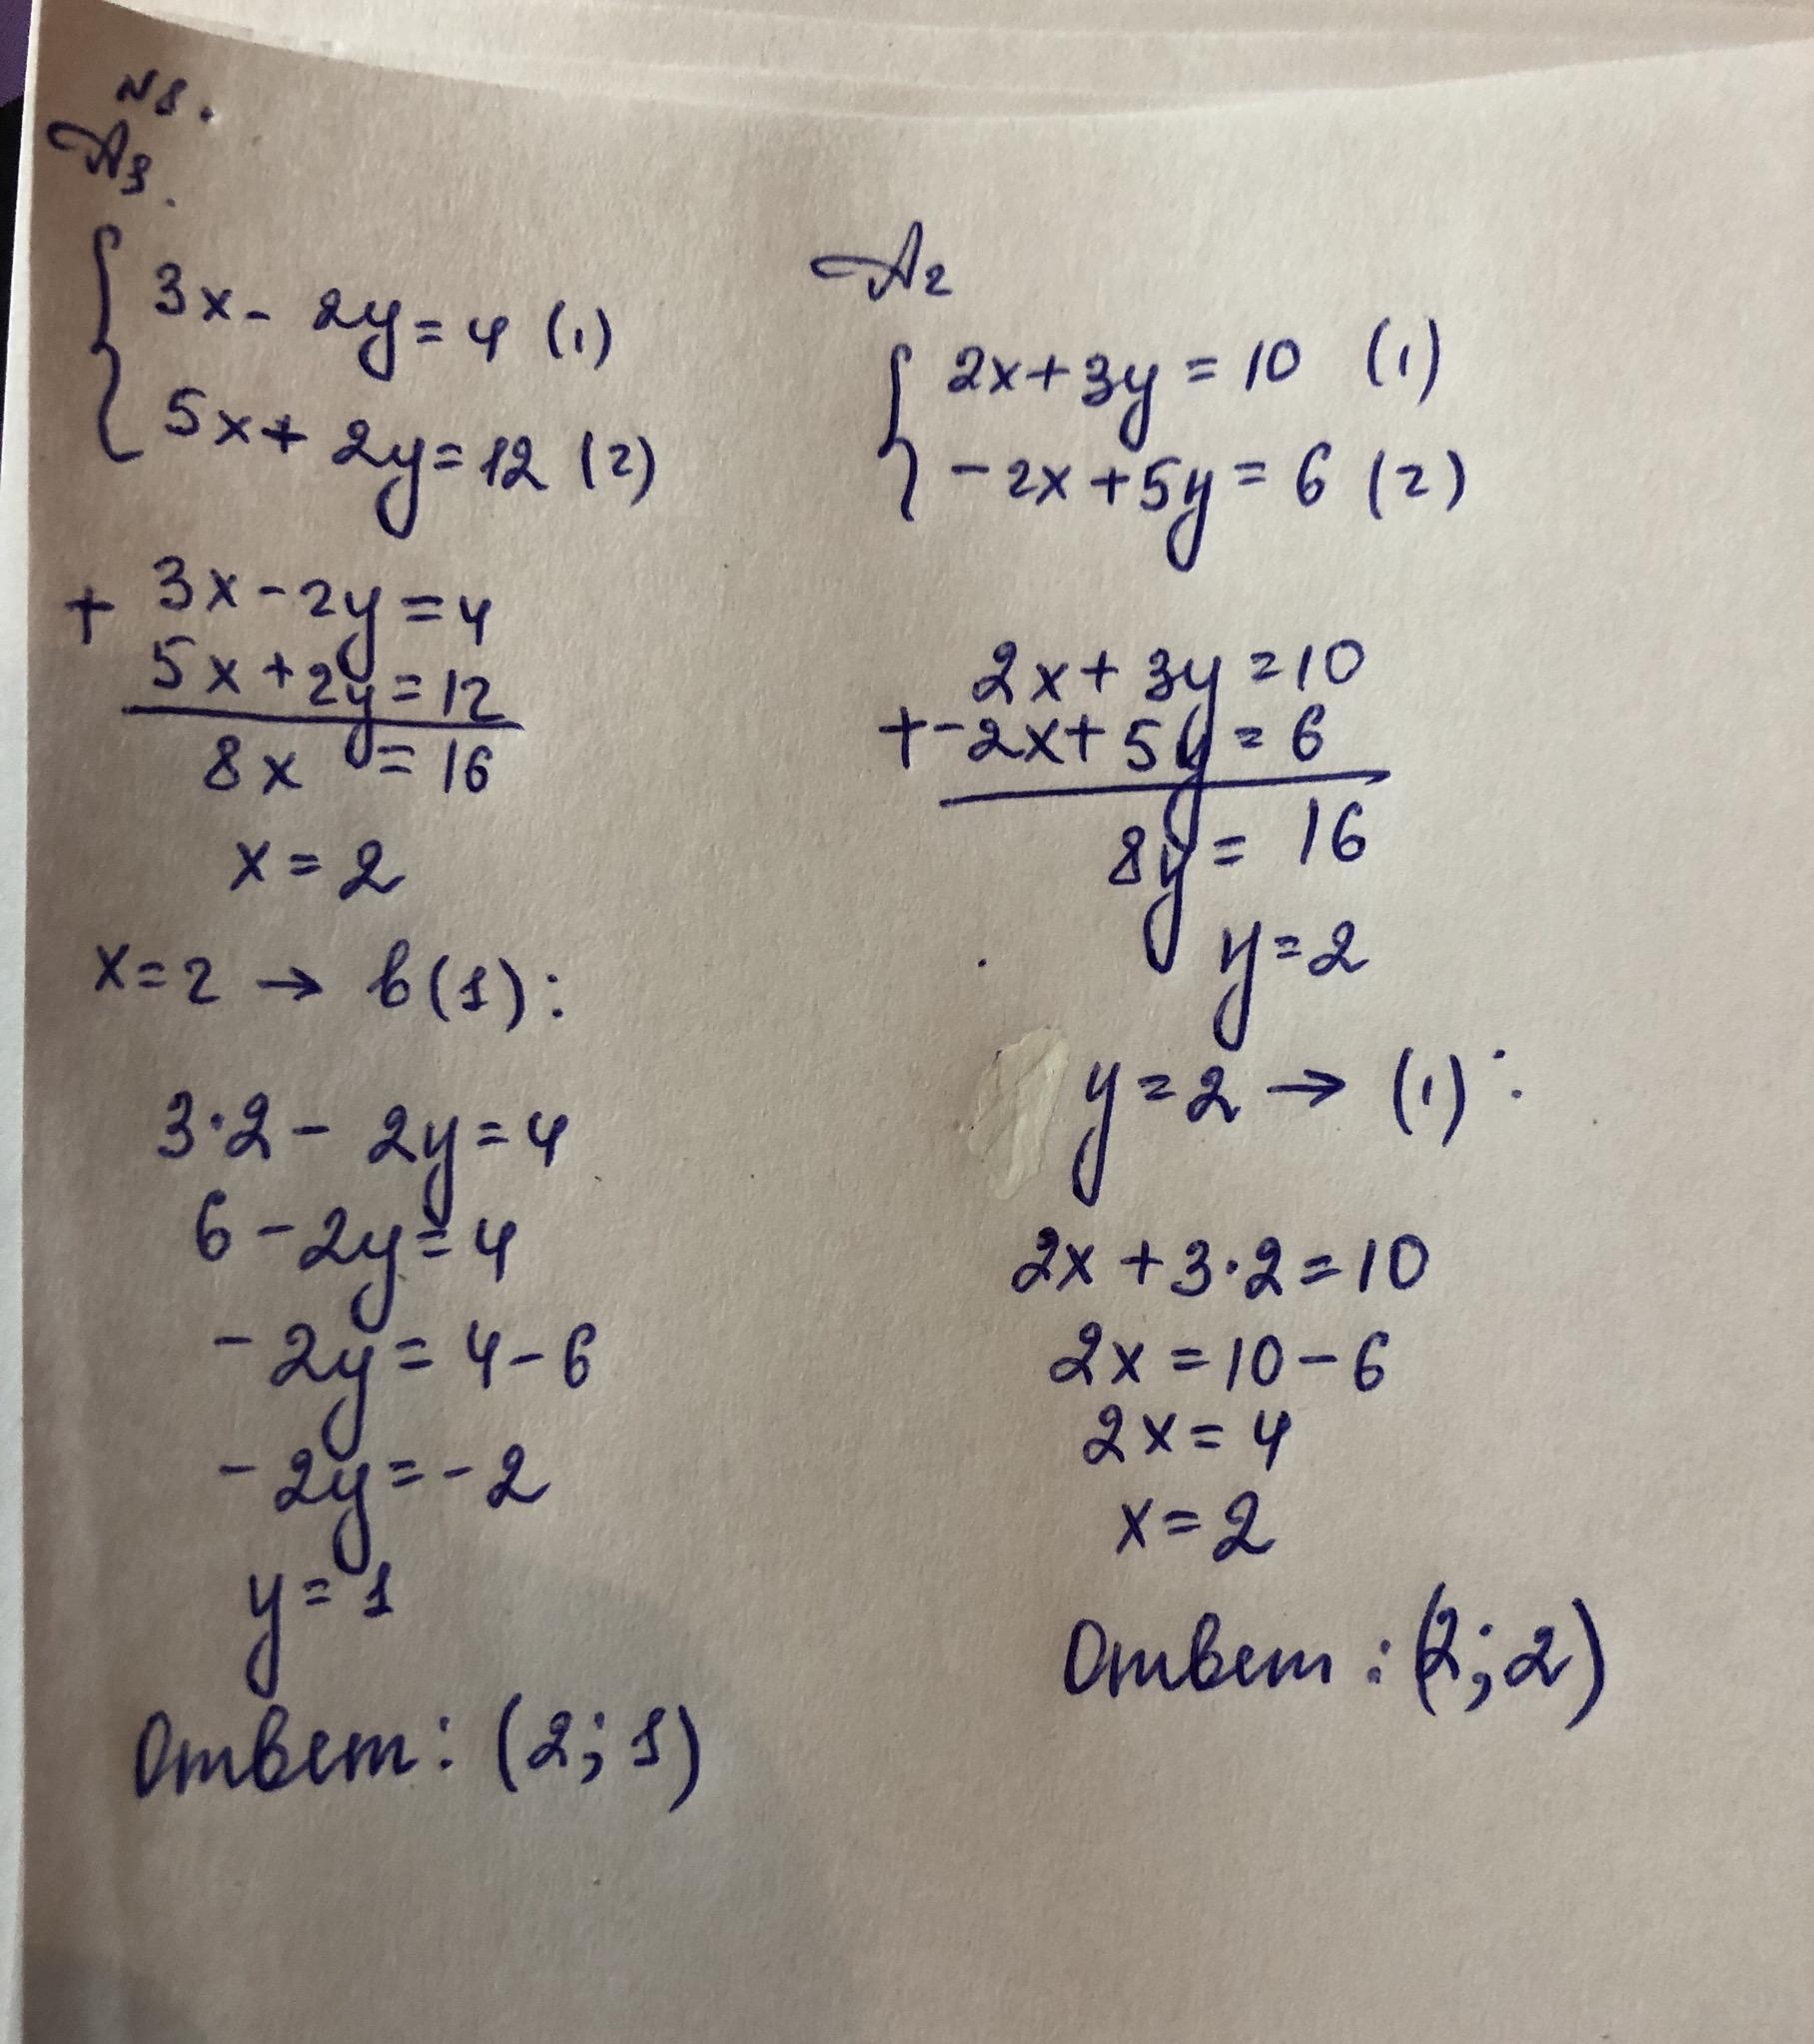 N1.
A1.
3x - 2y = 4 (1)
5x + 2y = 12 (2)
+ 3x - 2y = 4
5x + 2y = 12
8x = 16
x = 2
x = 2 → в (1):
3·2 - 2y = 4
6 - 2y = 4
-2y = 4 - 6
-2y = -2
y = 1
Ответ: (2; 1)
A2
2x + 3y = 10 (1)
-2x + 5y = 6 (2)
2x + 3y = 10
+ -2x + 5y = 6
8y = 16
y = 2
y = 2 → (1):
2x + 3·2 = 10
2x = 10 - 6
2x = 4
x = 2
Ответ: (2; 2)